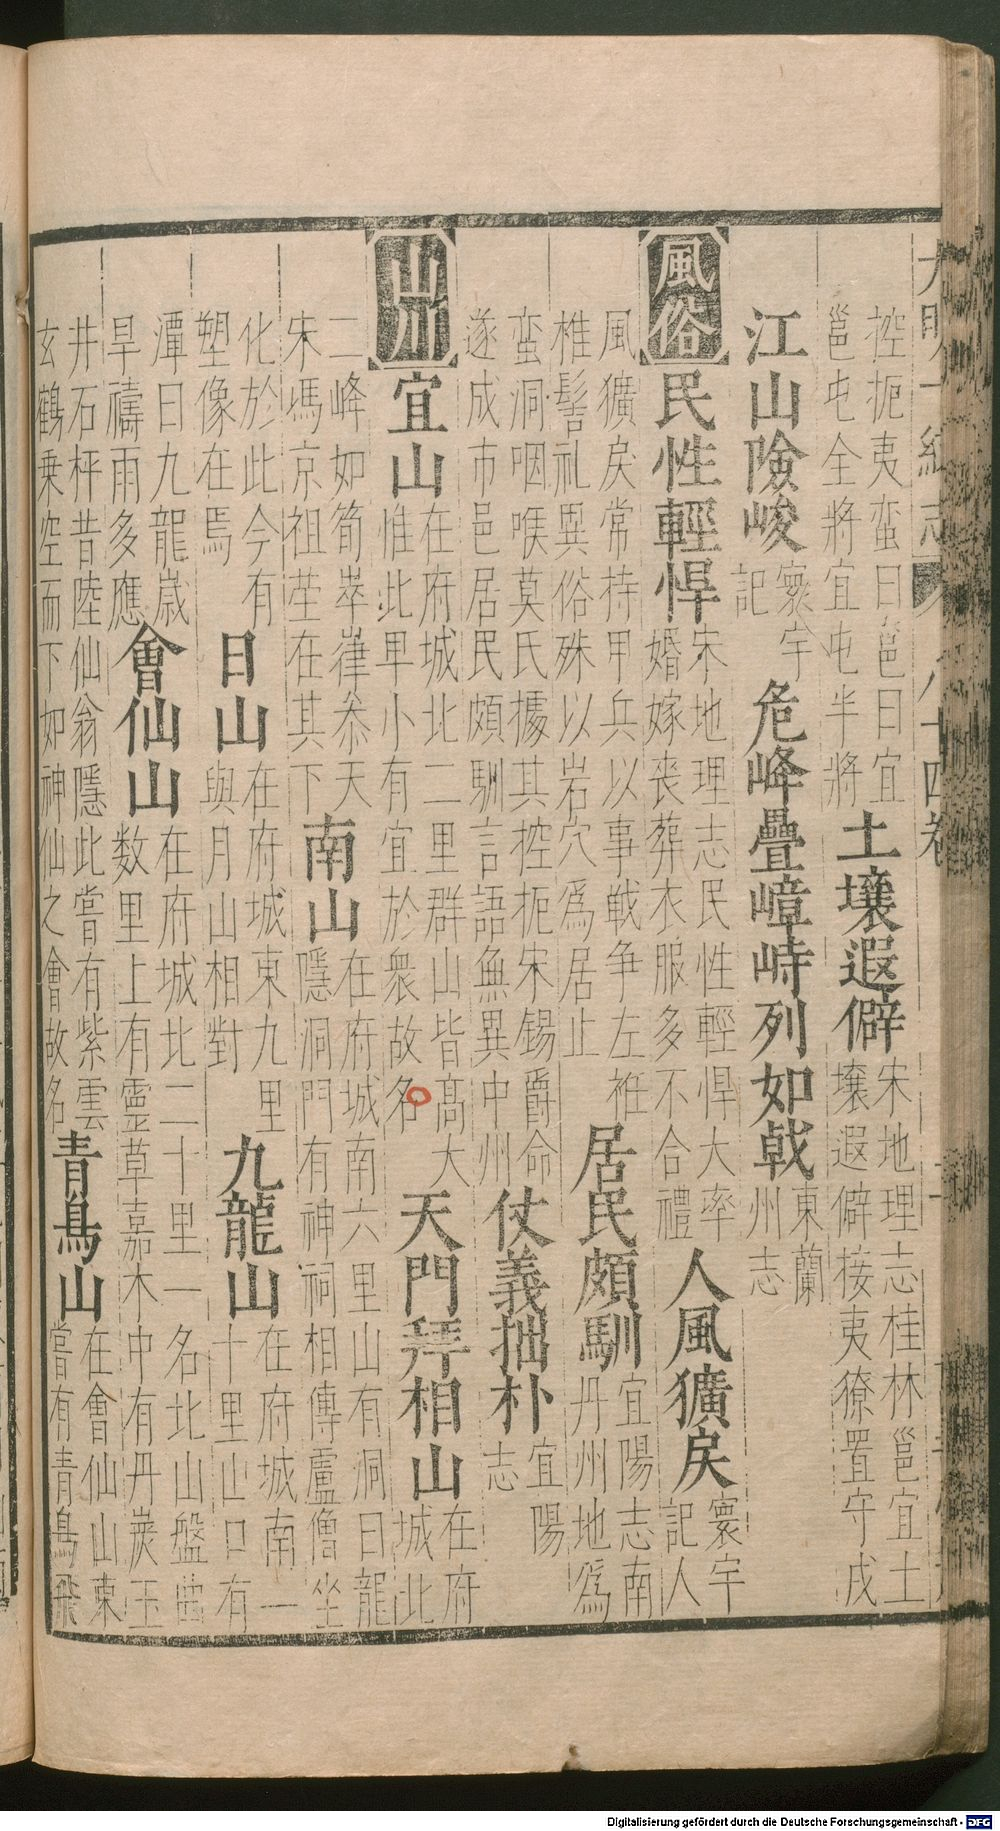 控扼夷蛮曰邕曰宜邕屯全將宜屯半將土壤遐僻宋地理志桂林邕宜土壤遐僻接夷獠置守戍
江山險峻寰宇記危峰疊嶂峙列如戟東蘭州志
風俗民性輕悍宋地理志民性輕悍大率婚嫁喪葬衣服多不合禮人風獷戾寰宇記人
風獷戾常持甲兵以事戦争左袵椎髻礼異俗殊以岩穴爲居止居民頗馴宜陽志南丹州地爲
蛮洞咽喉莫氏據其控扼宋锡爵命遂成市邑居民頗馴言語無異中州仗義拙朴宜陽志
山川宜山在府城北二里群山皆髙大惟此卑小有宜於衆故名天門拜相山在府城北
二峰如筍崒嵂叅天宋馮京祖茔在其下南山在府城南六里山有洞曰龍隱洞門有神祠相傳盧僧坐
化於此今有塑像在焉日山在府城東九里與月山相對九龍山在府城南一十里山口有
潭曰九龍歳旱禱雨多應會仙山在府城北二十里一名北山盤曲数里上有靈草嘉木中有丹炭玉
井石枰昔陸仙翁隱此嘗有紫雲玄鶴乗空而下如神仙之會故名青鳥山在會仙山東嘗有青鳥飛
Digitalisierung gefördert durch die Deutsche Forschungsgemeinschaft - DFG